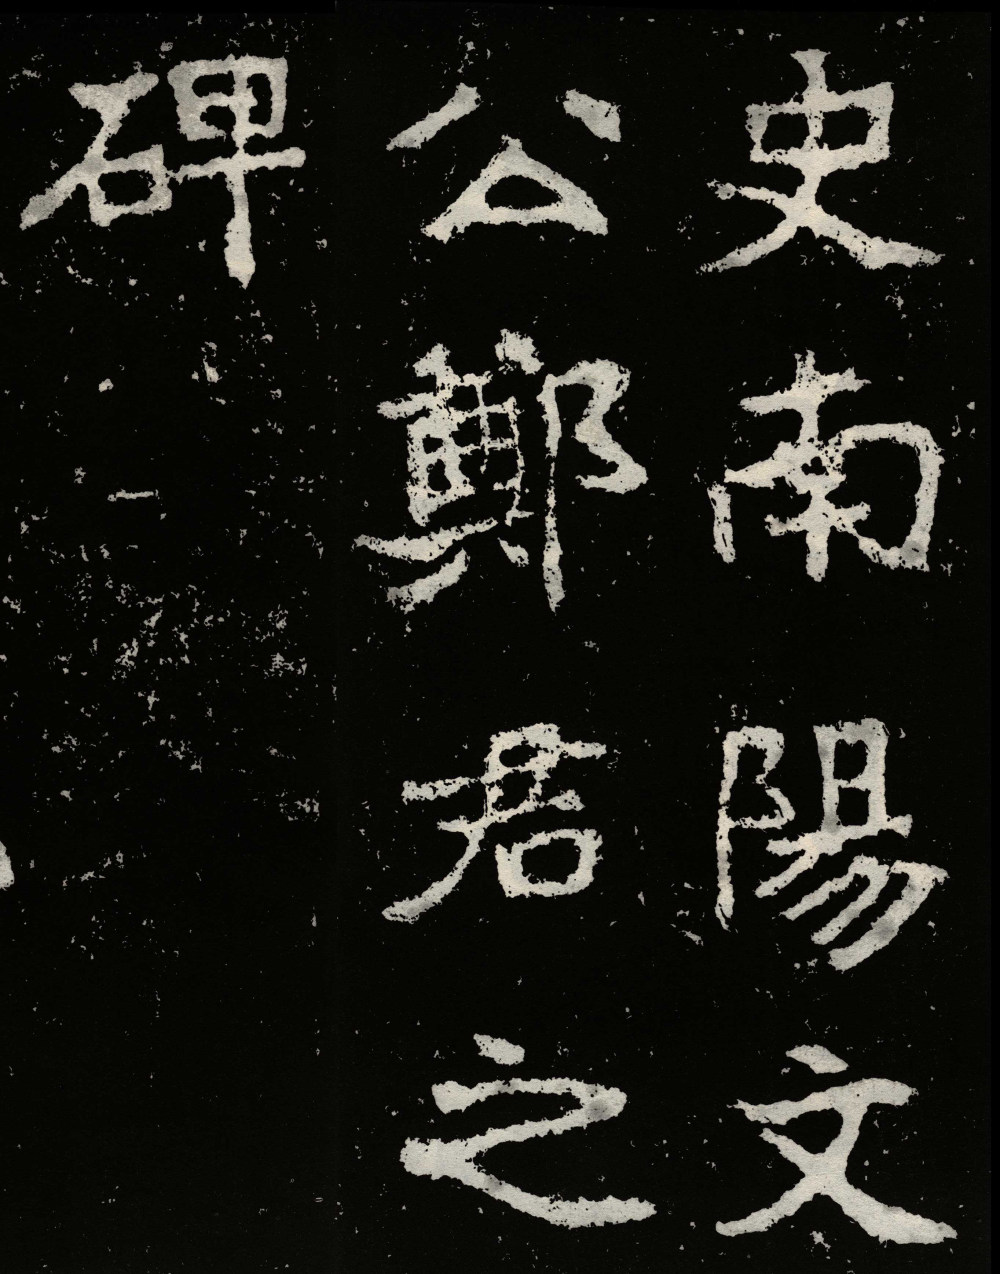 史南陽文
公鄭君之
碑